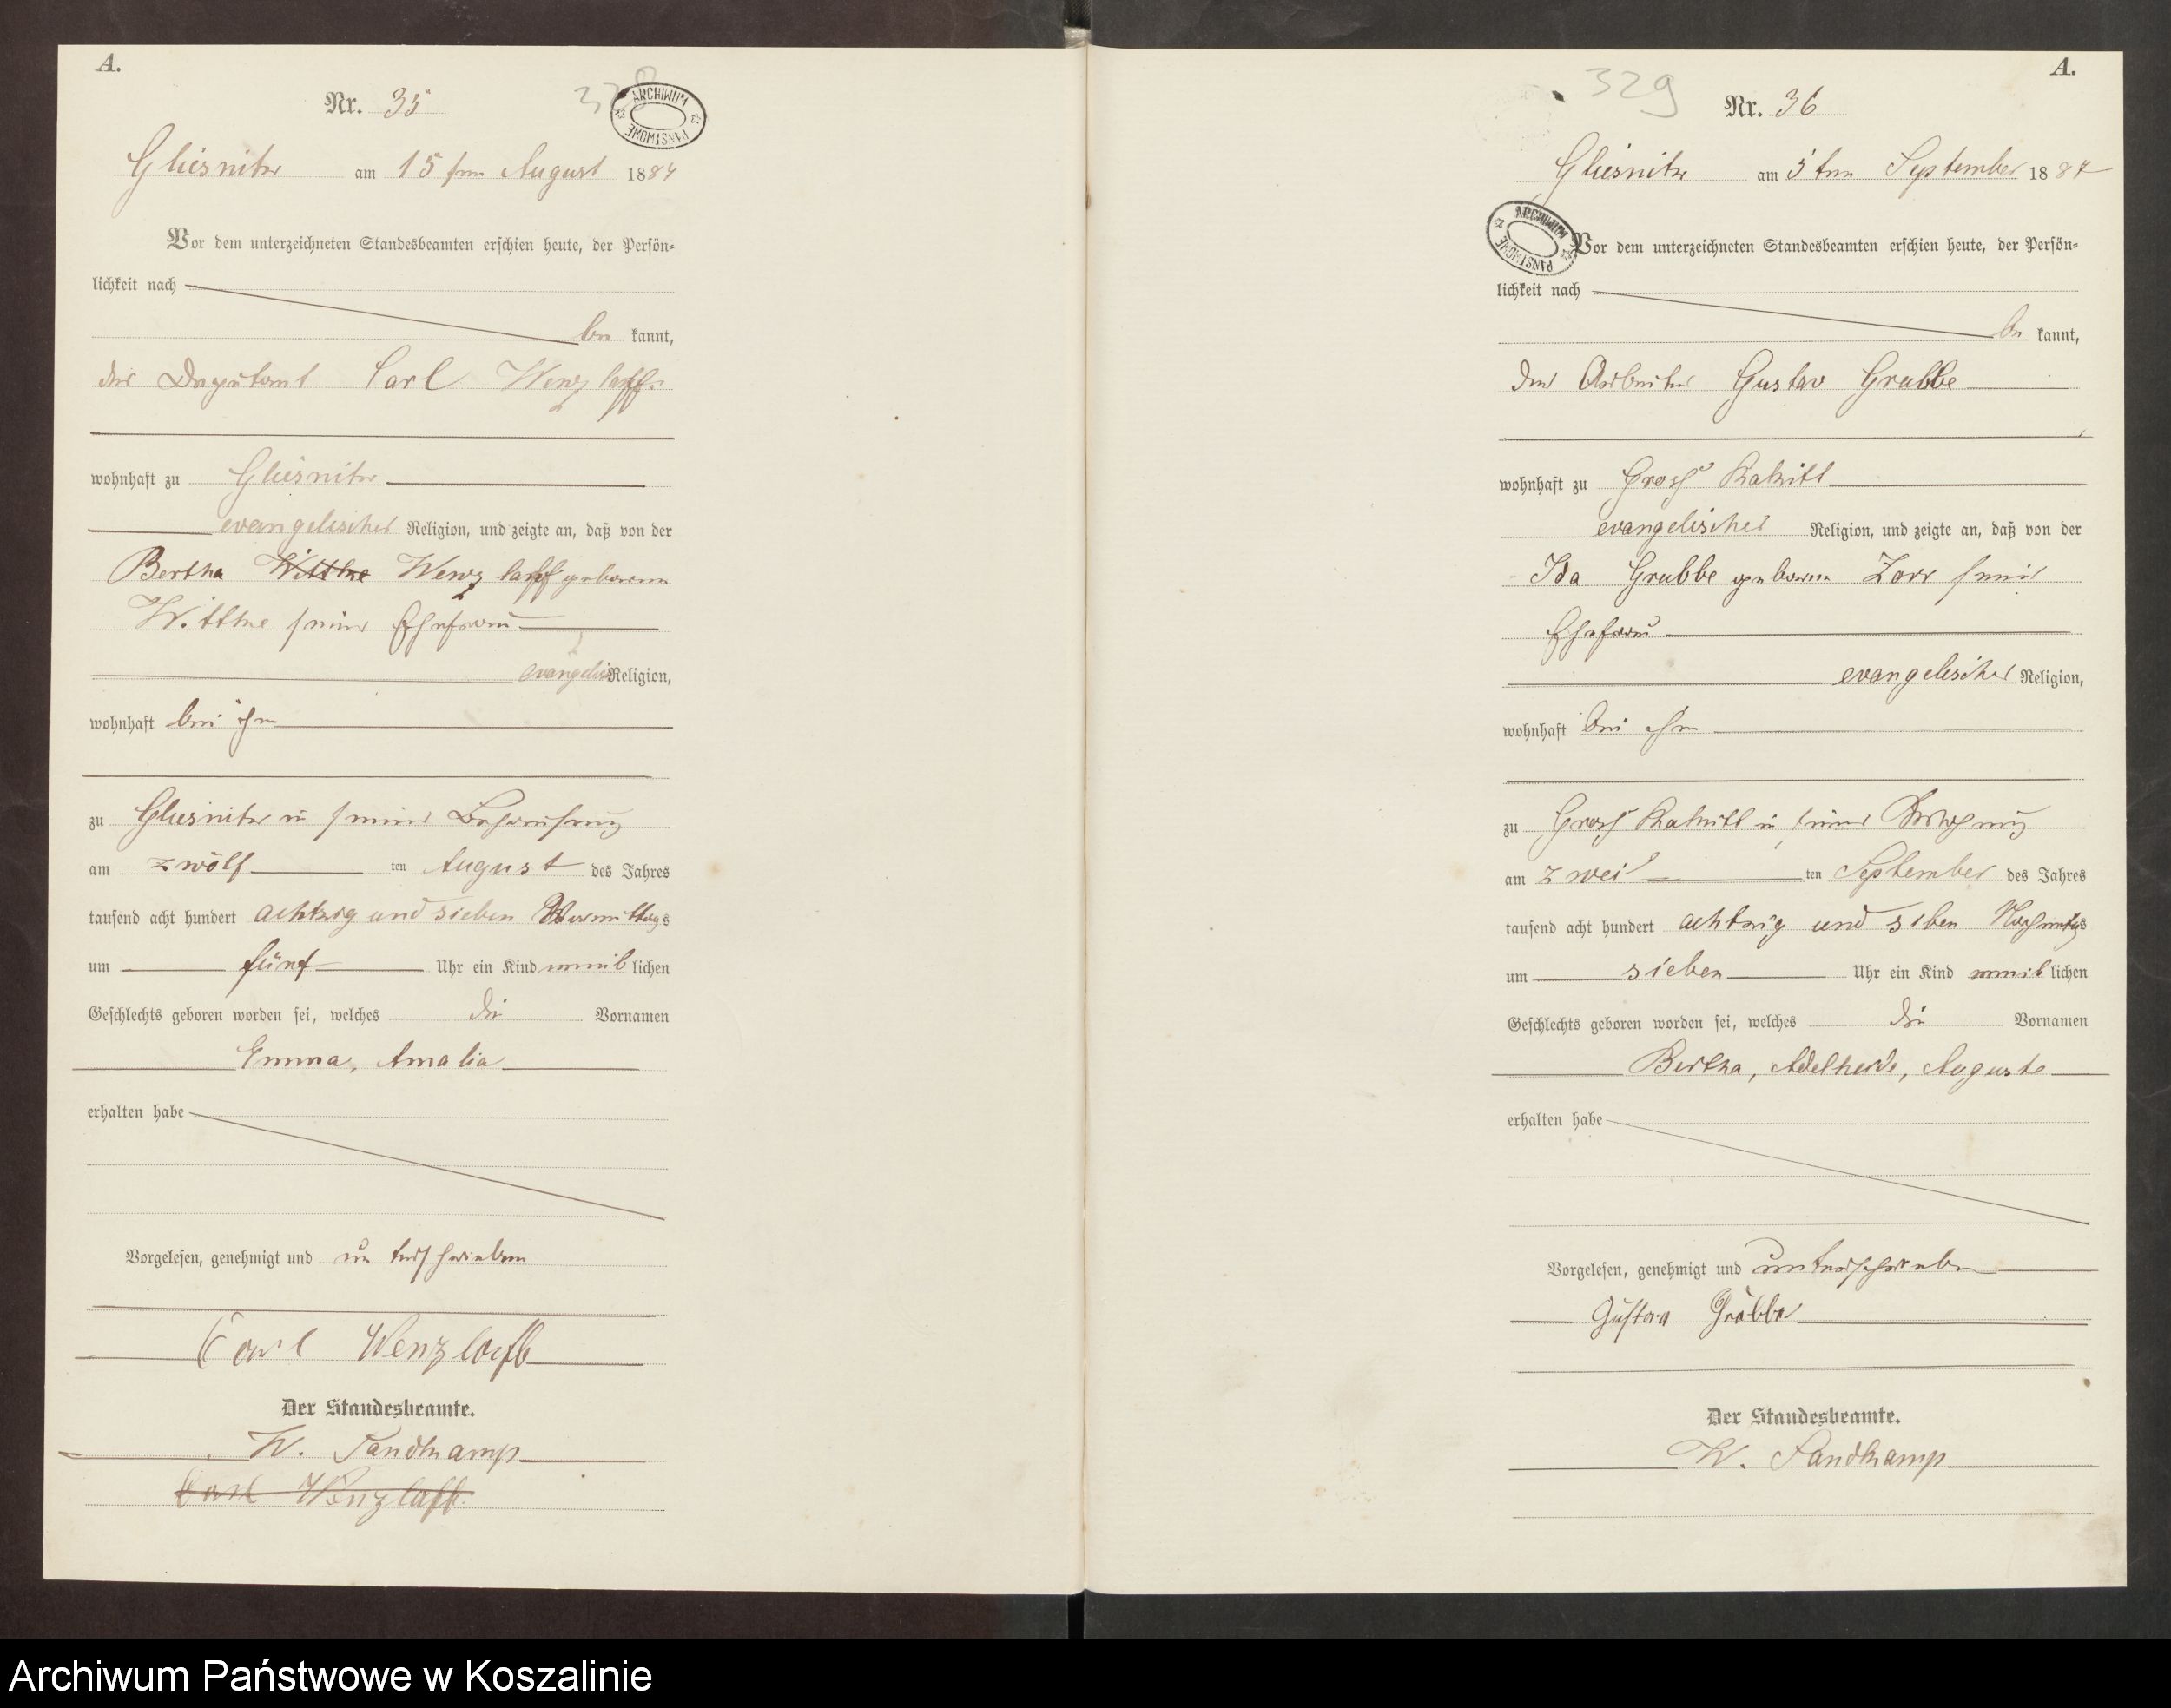 A.
Nr. 35
328
ARCHIWUM PAŃSTWOWE
Gliesnitz am 15ten August 1887
Vor dem unterzeichneten Standesbeamten erschien heute, der Persön-
lichkeit nach
be kannt,
der Deputant Carl Wenzlaff
wohnhaft zu Gliesnitz
evangelischer Religion, und zeigte an, daß von der
Bertha Witthe Wenzlaff geborenen
Witthe seiner Ehefrau
evangelis Religion,
wohnhaft bei ihm
zu Gliesnitz in seiner Behausung
am zwölf ten August des Jahres
tausend acht hundert achtzig und sieben Vormittags
um fünf Uhr ein Kind weib lichen
Geschlechts geboren worden sei, welches die Vornamen
Emma, Amalia
erhalten habe
Vorgelesen, genehmigt und unterschrieben
Carl Wenzlaff
Der Standesbeamte.
W. Sandkamp
Carl Wenzlaff.
A.
329
Nr. 36
Gliesnitz am 5ten September 1887
ARCHIWUM PAŃSTWOWE
Vor dem unterzeichneten Standesbeamten erschien heute, der Persön-
lichkeit nach
be kannt,
der Arbeiter Gustav Grubbe
wohnhaft zu Gross
evangelischer Religion, und zeigte an, daß von der
Ida Grubbe geborene Zorr seine
Ehefrau
evangelischer Religion,
wohnhaft bei ihm
zu Gross in seiner Wohnung
am zwei ten September des Jahres
tausend acht hundert achtzig und sieben Nachmittags
um sieben Uhr ein Kind weib lichen
Geschlechts geboren worden sei, welches die Vornamen
Bertha, Adelheide, Auguste
erhalten habe
Vorgelesen, genehmigt und unterschrieben
Gustav Grubbe
Der Standesbeamte.
W. Sandkamp
Archiwum Państwowe w Koszalinie